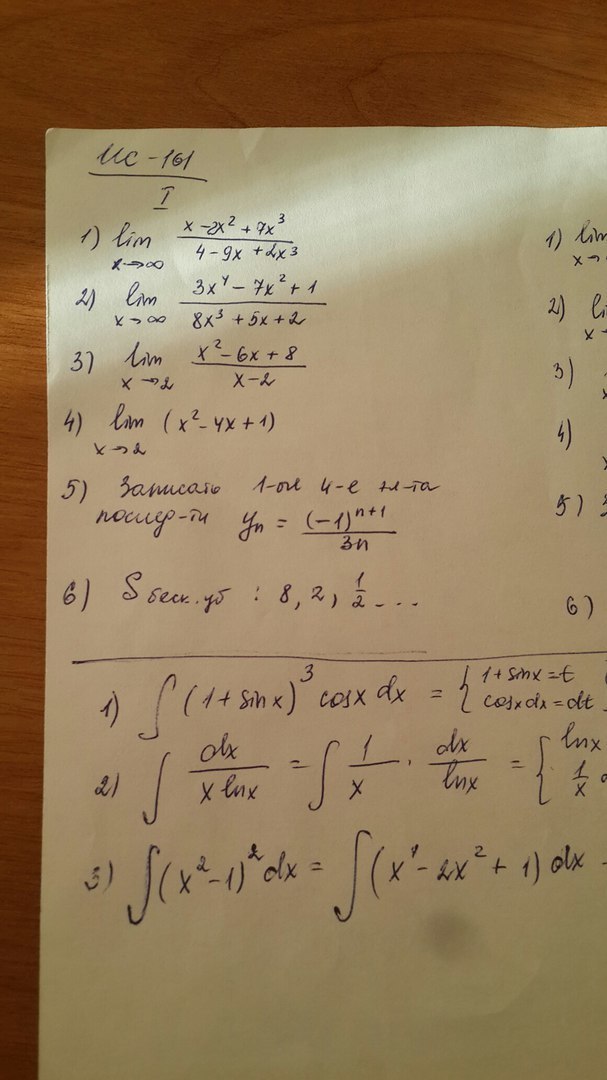 ИС-161
I
1) lim x→∞ (x - 2x² + 7x³)/(4 - 9x + 2x³)
2) lim x→∞ (3x⁴ - 7x² + 1)/(8x³ + 5x + 2)
3) lim x→2 (x² - 6x + 8)/(x - 2)
4) lim x→2 (x² - 4x + 1)
5) Записать 1-ые 4-е чл-та
послед-ти yₙ = (-1)ⁿ⁺¹/3n
6) S беск. уб : 8, 2, 1/2 ...
1) ∫(1 + sinx)³ cosx dx = { 1 + sinx = t
cosx dx = dt
2) ∫ dx/(x lnx) = ∫ 1/x · dx/lnx = { lnx
1/x
3) ∫(x² - 1)² dx = ∫(x⁴ - 2x² + 1) dx
1) lim
x→
2)
x→
3)
4)
5)
6)